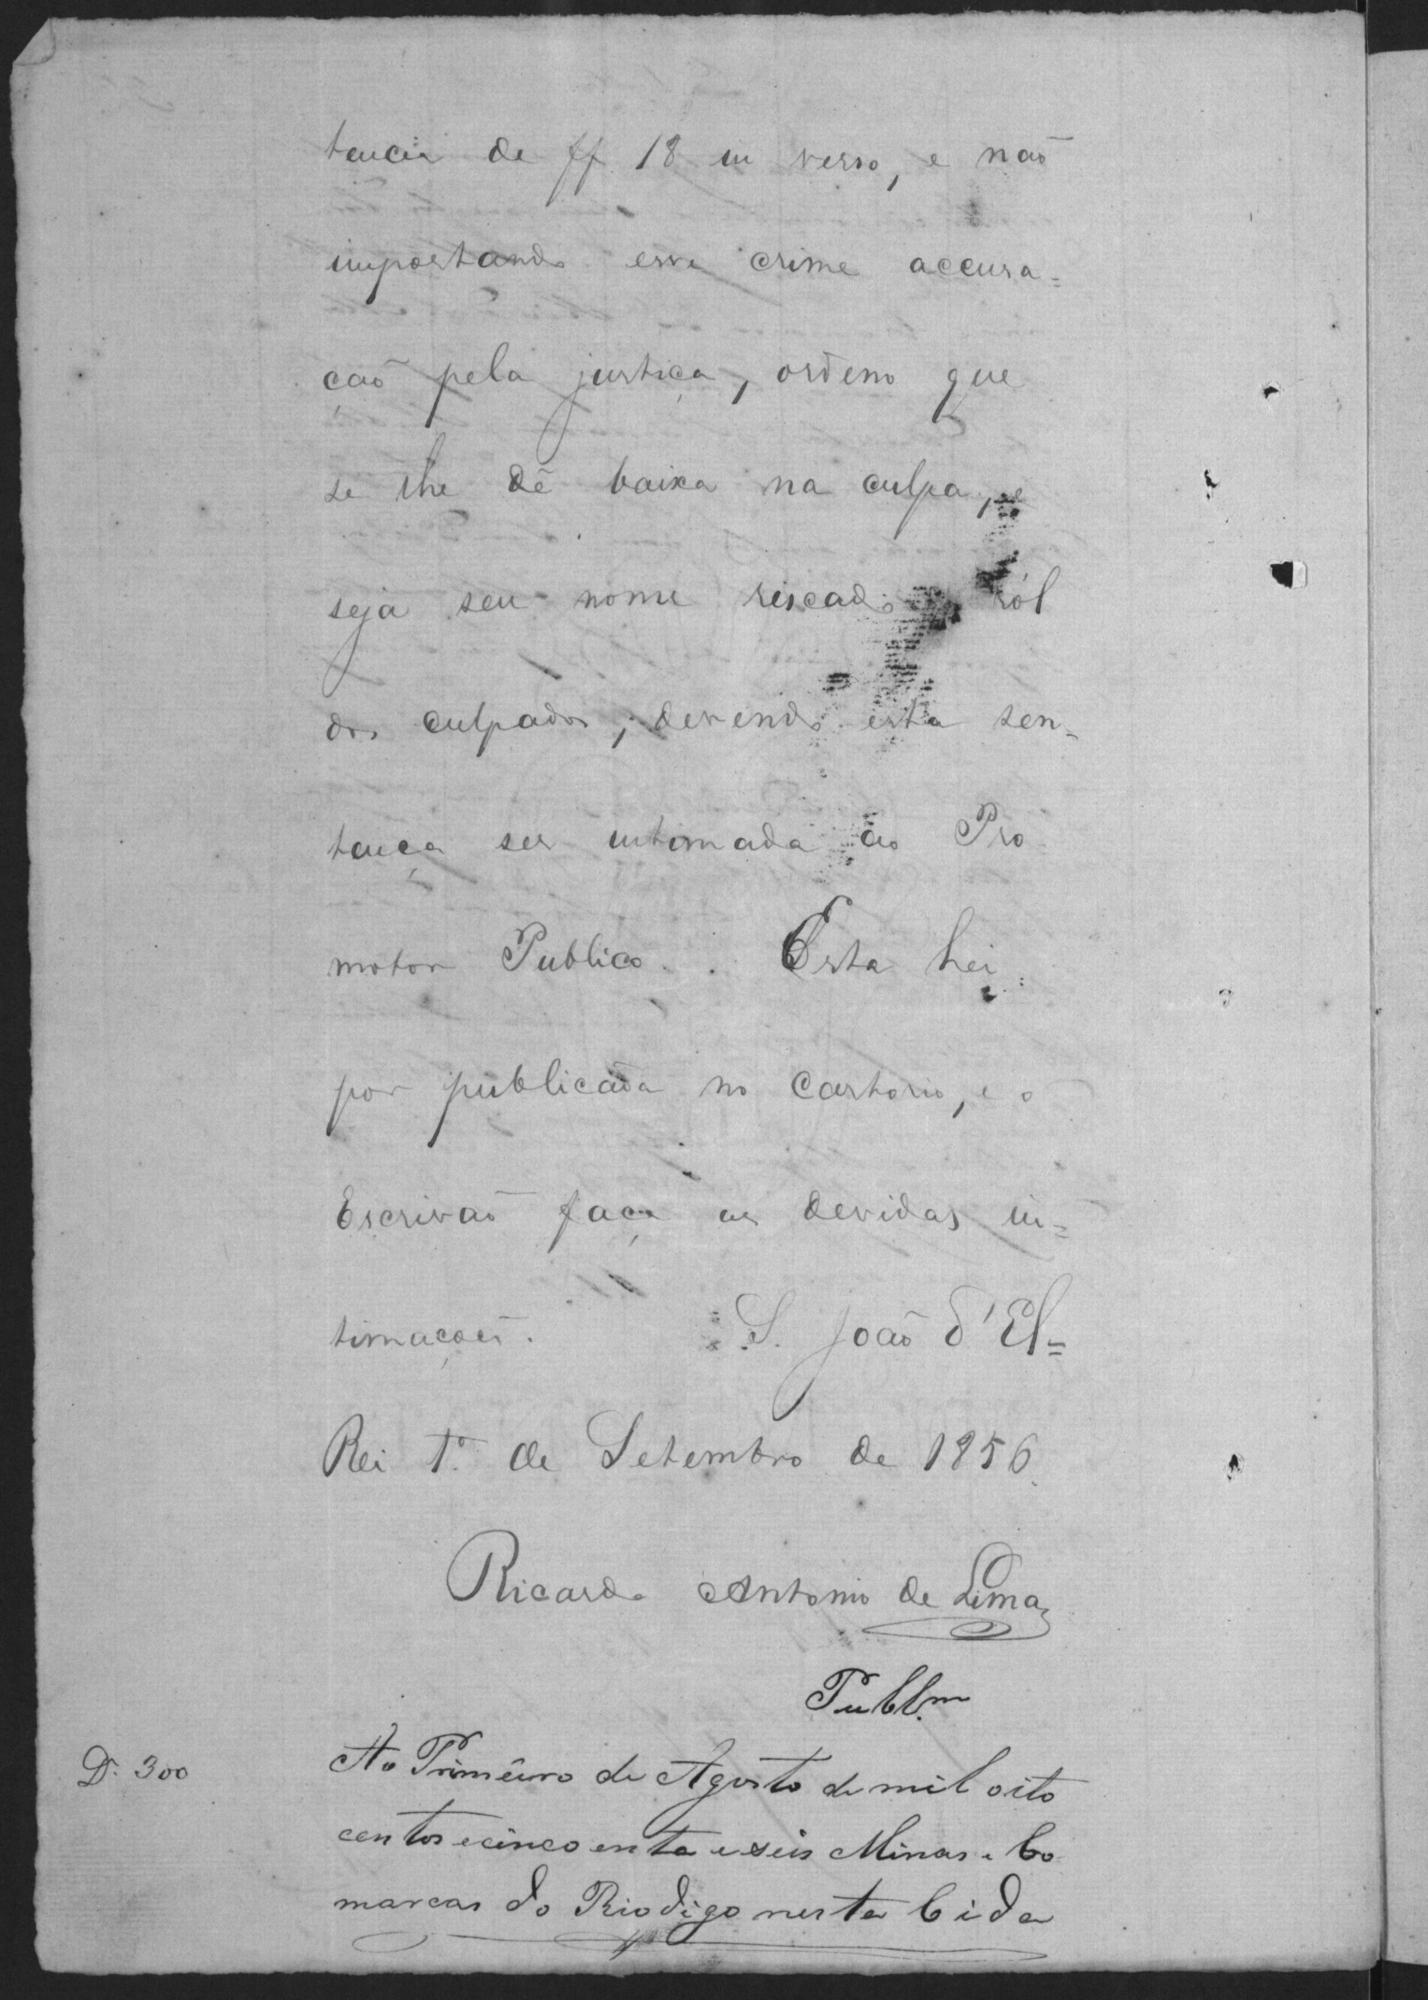 tencia de ff 18 in verso, e não
importando esse crime accusa=
ção pela justiça, ordeno que
se lhe dê baixa na culpa, e
seja seu nome riscado ról
dos culpados, devendo esta sen=
tença ser intimada ao Pro
motor Publico. Esta hei
por publicada no Cartorio, e o
Escrivão faça as devidas in=
timações. S. João d'El=
Rei 1º. de Setembro de 1856.
Ricardo Antonio de Lima
Publ.m
D. 300
Ao Primeiro de Agosto de mil oito
centos e cincoenta e seis Minas e Co
marcas do Rio digo nesta Cida